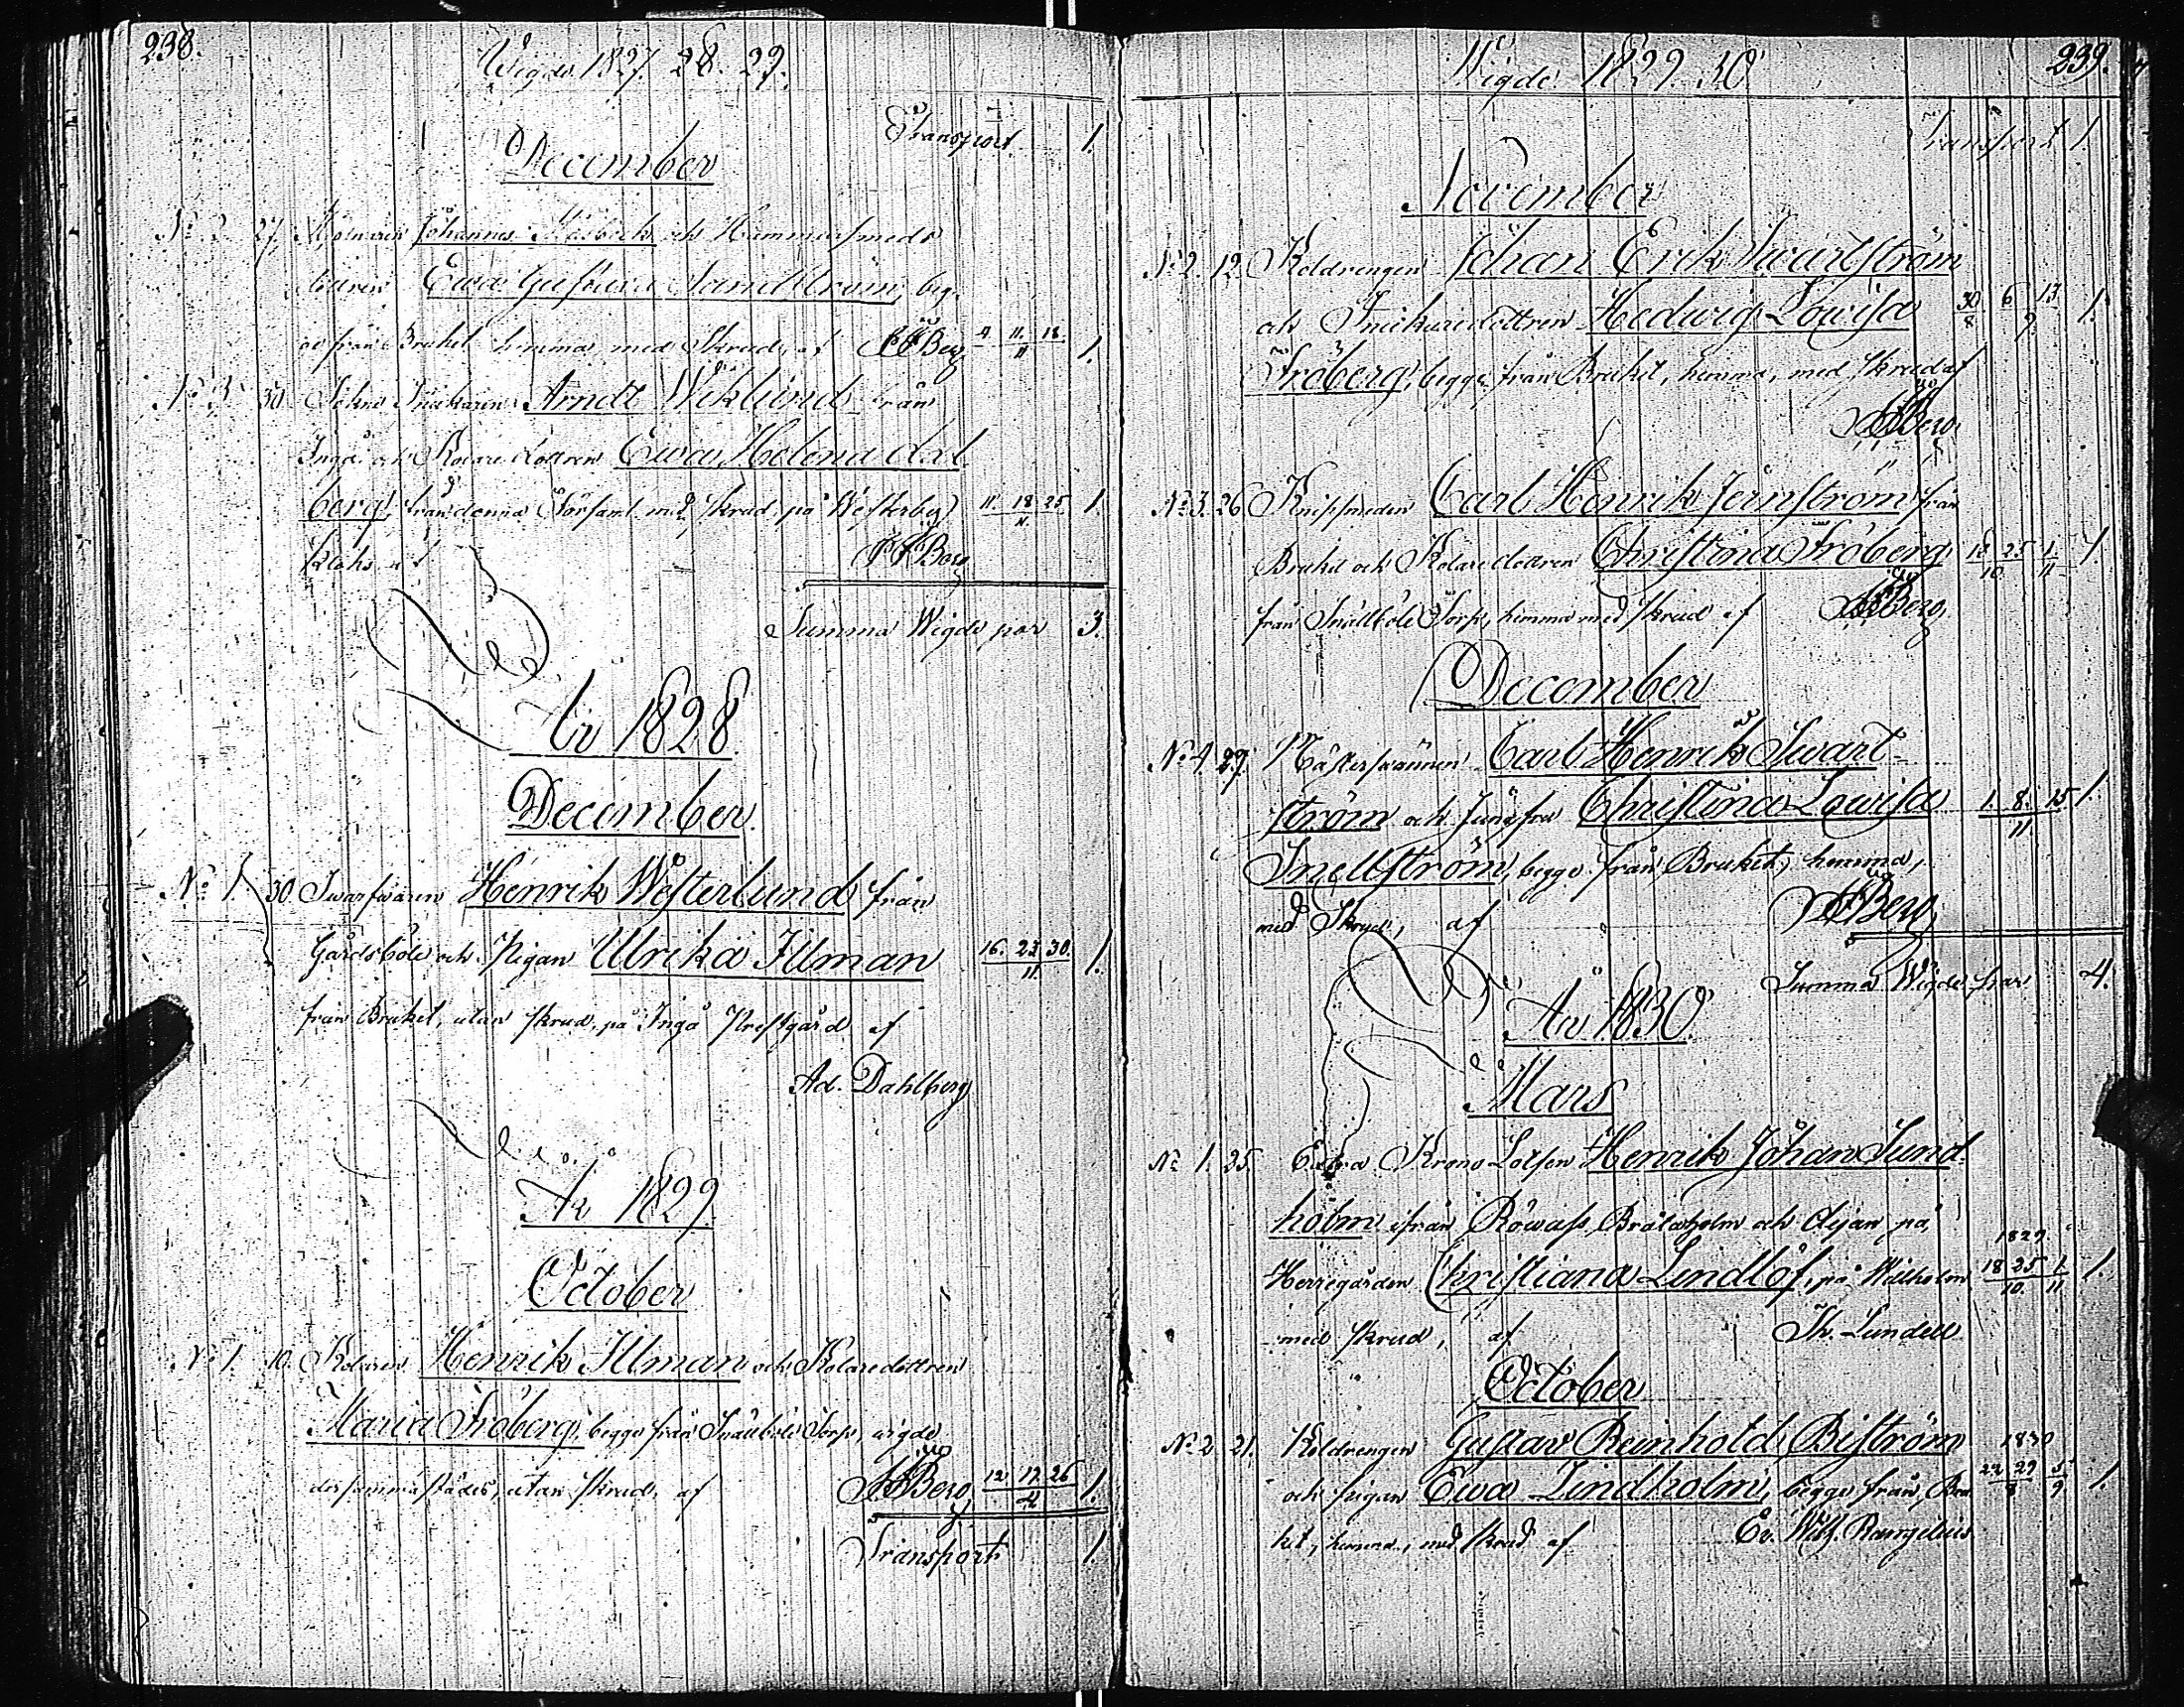 238.
Wigde 1827. 28. 29.
Transport 1.
December
No 2 27. Johannes och Hammarsmeds
dottren Ewa Gustava Sandström, beg-
ge från Bruket hemma med Skrud, af Berg 4. 11. 18./11 1.
No 3 30. Snickaren Arndt Wiklund från
Ingå och dottren Ewa Helena dal
berg, från denna Församl. med skrud, på Westerby 11. 18. 25./11 1.
af Berg
Summa Wigde par 3.
År 1828.
December.
No 1. 30. Henrik Westerlund från
Gårdsböle och Pigan Ulrika Illman 16. 23. 30./11. 1.
från Bruket, utan skrud, på Ingå Prestgård af
Ad. Dahlberg
År 1829.
October
No 1. 10. Kolaren Henrik Illman och Kolaredottren
Maria Fröberg, begge från Torp, wigde
dersammastädes, utan skrud, af Berg 1.
Transport 1.
Wigde 1829. 30.
239.
Transport 1.
November
No 2. 12. Koldrengen Johan Erik Swartström
och Snickaredottren Hedwig Lowisa 30/8 6 13/9 1.
Fröberg, begge från Bruket, hemma, med skrud af
Berg
No 3. 26 Knipsmeden Carl Henrik Jernström från
Bruket och Kolaredottren Christina Fröberg 18 25/10 1/11 1.
från Torp, hemma med skrud af Berg
December
No 4. 29. Mästersvännen Carl Henrik Swart-
ström och Jungfru Christina Lowisa 1. 8. 15/11 1.
Snellström, begge från Bruket, hemma,
med Skrud, af Berg
Summa Wigde par 4.
År 1830.
Mars
No 1. 25. Extra Krono Lotsen Henrik Johan Sund-
holm ifrån och på
Herregården Christiana Lindlöf, på 1829 18 25/10 1/11 1.
med skrud, af Th. Lundell
October
No 2 21. Koldrengen Gustav Reinhold Biström 1830
och pigan Ewa Lindholm, begge från Bru 22 29/8 5/9 1.
ket, hemma, med skrud af Wilh. Rangelius